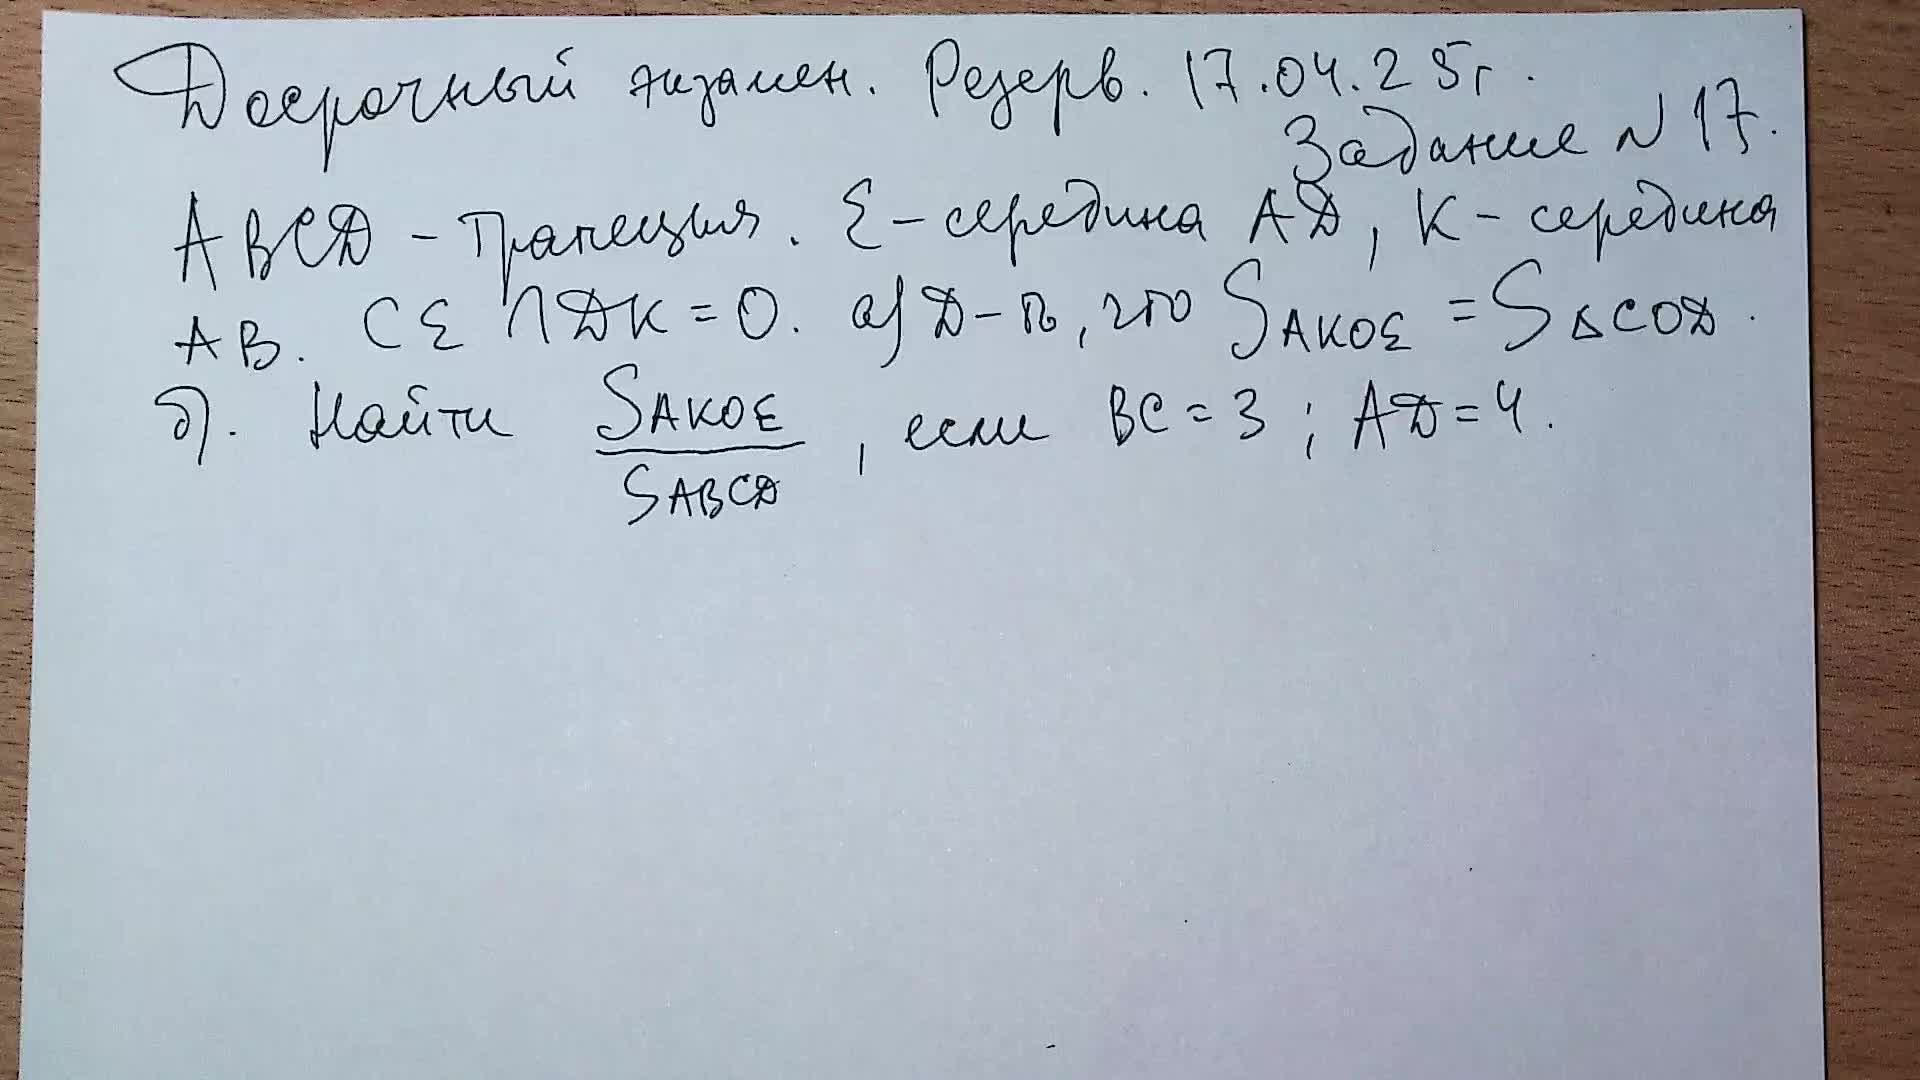 Досрочный экзамен. Резерв. 17.04.25г.
Задание N 17.
ABCD - трапеция. E - середина AD, K - середина
AB. CE ∩ DK = O. а) Д-ть, что S AKOE = S ΔCOD.
б). Найти S AKOE / S ABCD, если BC = 3; AD = 4.